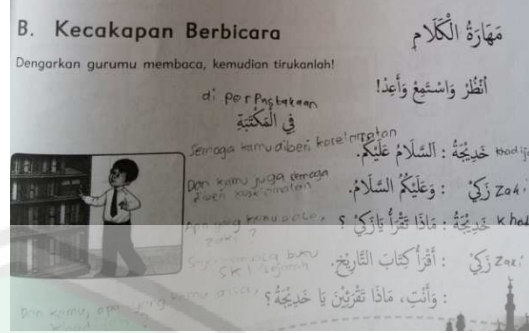 B. Kecakapan Berbicara
مَهَارَةُ الْكَلَام
Dengarkan gurumu membaca, kemudian tirukanlah!
أُنْظُرْ وَاسْتَمِعْ وَأَعِدْ!
di perpustakaan
فِي الْمَكْتَبَةِ
Semoga kamu diberi keselamatan
خَدِيْجَةُ : اَلسَّلَامُ عَلَيْكُمْ.
Dan kamu juga semoga diberi keselamatan
زَكِيْ : وَعَلَيْكُمُ السَّلَامُ. Zaki
Apa yang kamu baca, Zaki ?
خَدِيْجَةُ : مَاذَا تَقْرَأُ يَازَكِيْ ؟
buku SKI / sejarah
زَكِيْ : أَقْرَأُ كِتَابَ التَّارِيْخِ. Zaki
Dan kamu, apa yang kamu
: وَأَنْتِ، مَاذَا تَقْرَئِيْنَ يَا خَدِيْجَةُ ؟